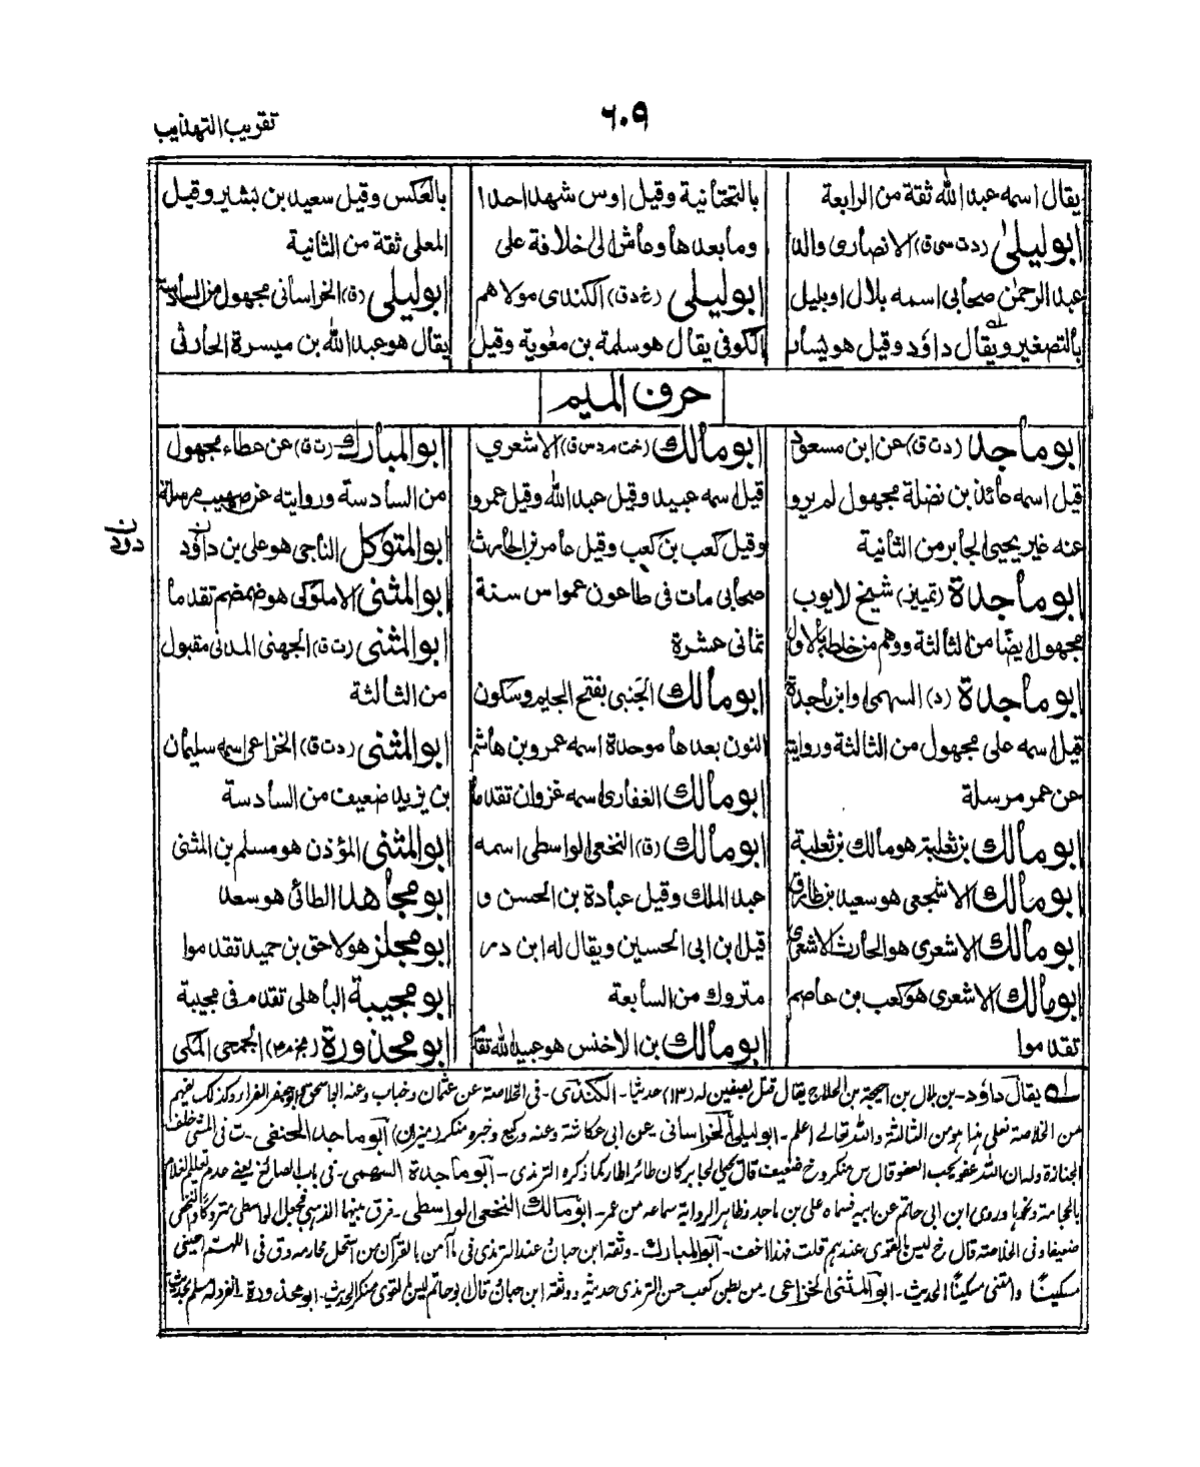 تقريب التهذيب
٦٠٩
يقال اسمه عبد الله ثقة من الرابعة
ابو ليلى (د ت س ق) الانصارى والد
عبد الرحمن صحابى اسمه بلال او بليل
بالتصغير ويقال داؤد وقيل هو يسار
بالتحتانية وقيل اوس شهد احدا
وما بعدها وعاش الى خلافة على
ابو ليلى (رغ د ق) الكندى مولاهم
الكوفى يقال هو سلمة بن معوية وقيل
بالعكس وقيل سعيد بن بشير وقيل
المعلى ثقة من الثانية
ابو ليلى (ق) الخراسانى مجهول من السادسة
يقال هو عبد الله بن ميسرة الحارثى
حرف الميم
ابو ماجد (د ت ق) عن ابن مسعود
قيل اسمه عائذ بن نضلة مجهول لم يرو
عنه غير يحيى الجابر من الثانية
ابو ماجدة (تمييز) شيخ لايوب
مجهول ايضا من الثالثة ووهم من خلطه بالاول
ابو ماجدة (د) السهمى وابن ماجدة
قيل اسمه على مجهول من الثالثة وروايته
عن عمر مرسلة
ابو مالك بن ثعلبة هو مالك بن ثعلبة
ابو مالك الاشجعى هو سعيد بن طارق
ابو مالك الاشعرى هو الحارث الاشعرى
ابو مالك الاشعرى هو كعب بن عاصم
تقدموا
ابو مالك (خت م د س ق) الاشعري
قيل اسمه عبيد وقيل عبد الله وقيل عمرو
وقيل كعب بن كعب وقيل عامر بن الحارث
صحابى مات فى طاعون عمواس سنة
ثمانى عشرة
ابو مالك الجنبى بفتح الجيم وسكون
النون بعدها موحدة اسمه عمرو بن هاشم
ابو مالك الغفارى اسمه غزوان تقدما
ابو مالك (ق) النخعى الواسطى اسمه
عبد الملك وقيل عبادة بن الحسن و
قيل ابن ابى الحسين ويقال له ابن در
متروك من السابعة
ابو مالك بن الاخنس هو عبيد الله تقدم
ابو المبارك (ت ق) عن عطاء مجهول
من السادسة وروايته عن صهيب مرسلة
ابو المتوكل الناجى هو على بن داؤد
ابو المثنى الاملوكى هو ضمضم تقدما
ابو المثنى (ت ق) الجهنى المدنى مقبول
من الثالثة
ابو المثنى (د ت ق) الخزاعى اسمه سليمان
بن يزيد ضعيف من السادسة
ابو المثنى المؤذن هو مسلم بن المثنى
ابو مجاهد الطائى هو سعد
ابو مجلز هو لاحق بن حميد تقدموا
ابو مجيبة الباهلى تقدم فى مجيبة
ابو محذورة (بخ م ٤) الجمحى المكى
يقال داؤد - بن بلال بن احيحة بن الجلاح يقال قتل بصفين له (١٣) حديثا - الكندى - فى الخلاصة عن عثمان وخباب وعنه ابو اسحق وابو جعفر الفراء وكذلك يفهم
من الخلاصة فعلى هذا هو من الثالثة والله تعالى اعلم - ابو ليلى الخراسانى - عن ابى عكاشة وعنه وكيع وخبره منكر (ميزان) ابو ماجد الحنفى - ت فى المشى خلف
الجنازة وله ان الله عفو يحب العفو قال س منكر و خ ضعيف قال يحيى الجابر كان طائر اطار كما ذكره الترمذى - ابو ماجدة السهمى - فى باب الصائغ يعنى عدم تعليم الغلام
بالحجامة ونحوها وروى ابن ابى حاتم عن ابيه فسماه على بن ماجد وظاهر الرواية سماعه من عمر - ابو مالك النخعى الواسطى - فرق بينهما الذهبى فجعل الواسطى متروكا والنخعى
ضعيفا وفى الخلاصة قال خ ليس بالقوى عندهم قلت فهذا اخف - ابو المبارك - وثقه ابن حبان عند الترمذى فى ما آمن بالقرآن من استحل محارمه وق فى اللهم احينى
مسكينا وامتنى مسكينا الحديث - ابو المثنى الخزاعى - من بطن كعب حسن الترمذى حديثه ووثقه ابن حبان قال ابو حاتم ليس بالقوى منكر الحديث - ابو محذورة - انفرد له مسلم بحديث